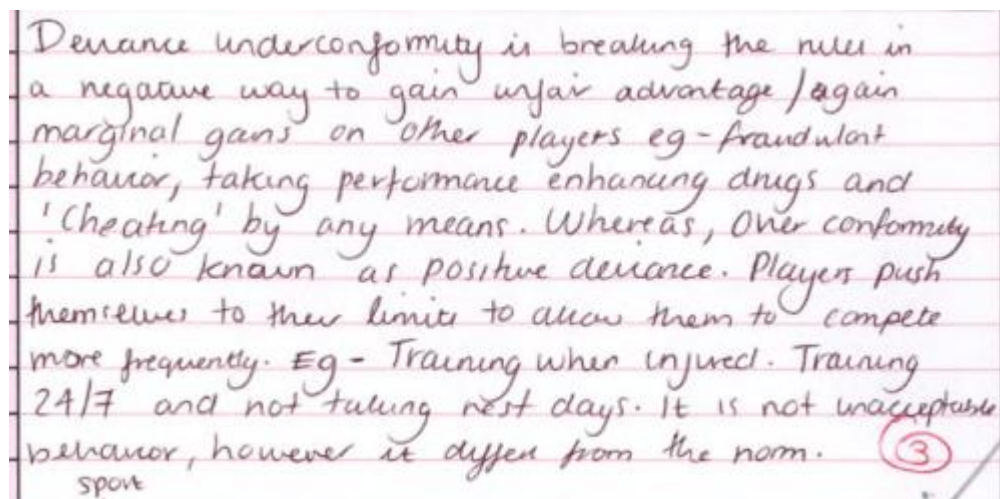 Deviance underconformity is breaking the rules in
a negative way to gain unfair advantage / again
marginal gains on other players eg - fraudulant
behavior, taking performance enhancing drugs and
'Cheating' by any means. Whereas, Over conformity
is also known as positive deviance. Players push
themselves to their limits to allow them to compete
more frequently. Eg - Training when injured. Training
24/7 and not taking rest days. It is not unacceptable
behavior, however it differs from the norm. 3
sport